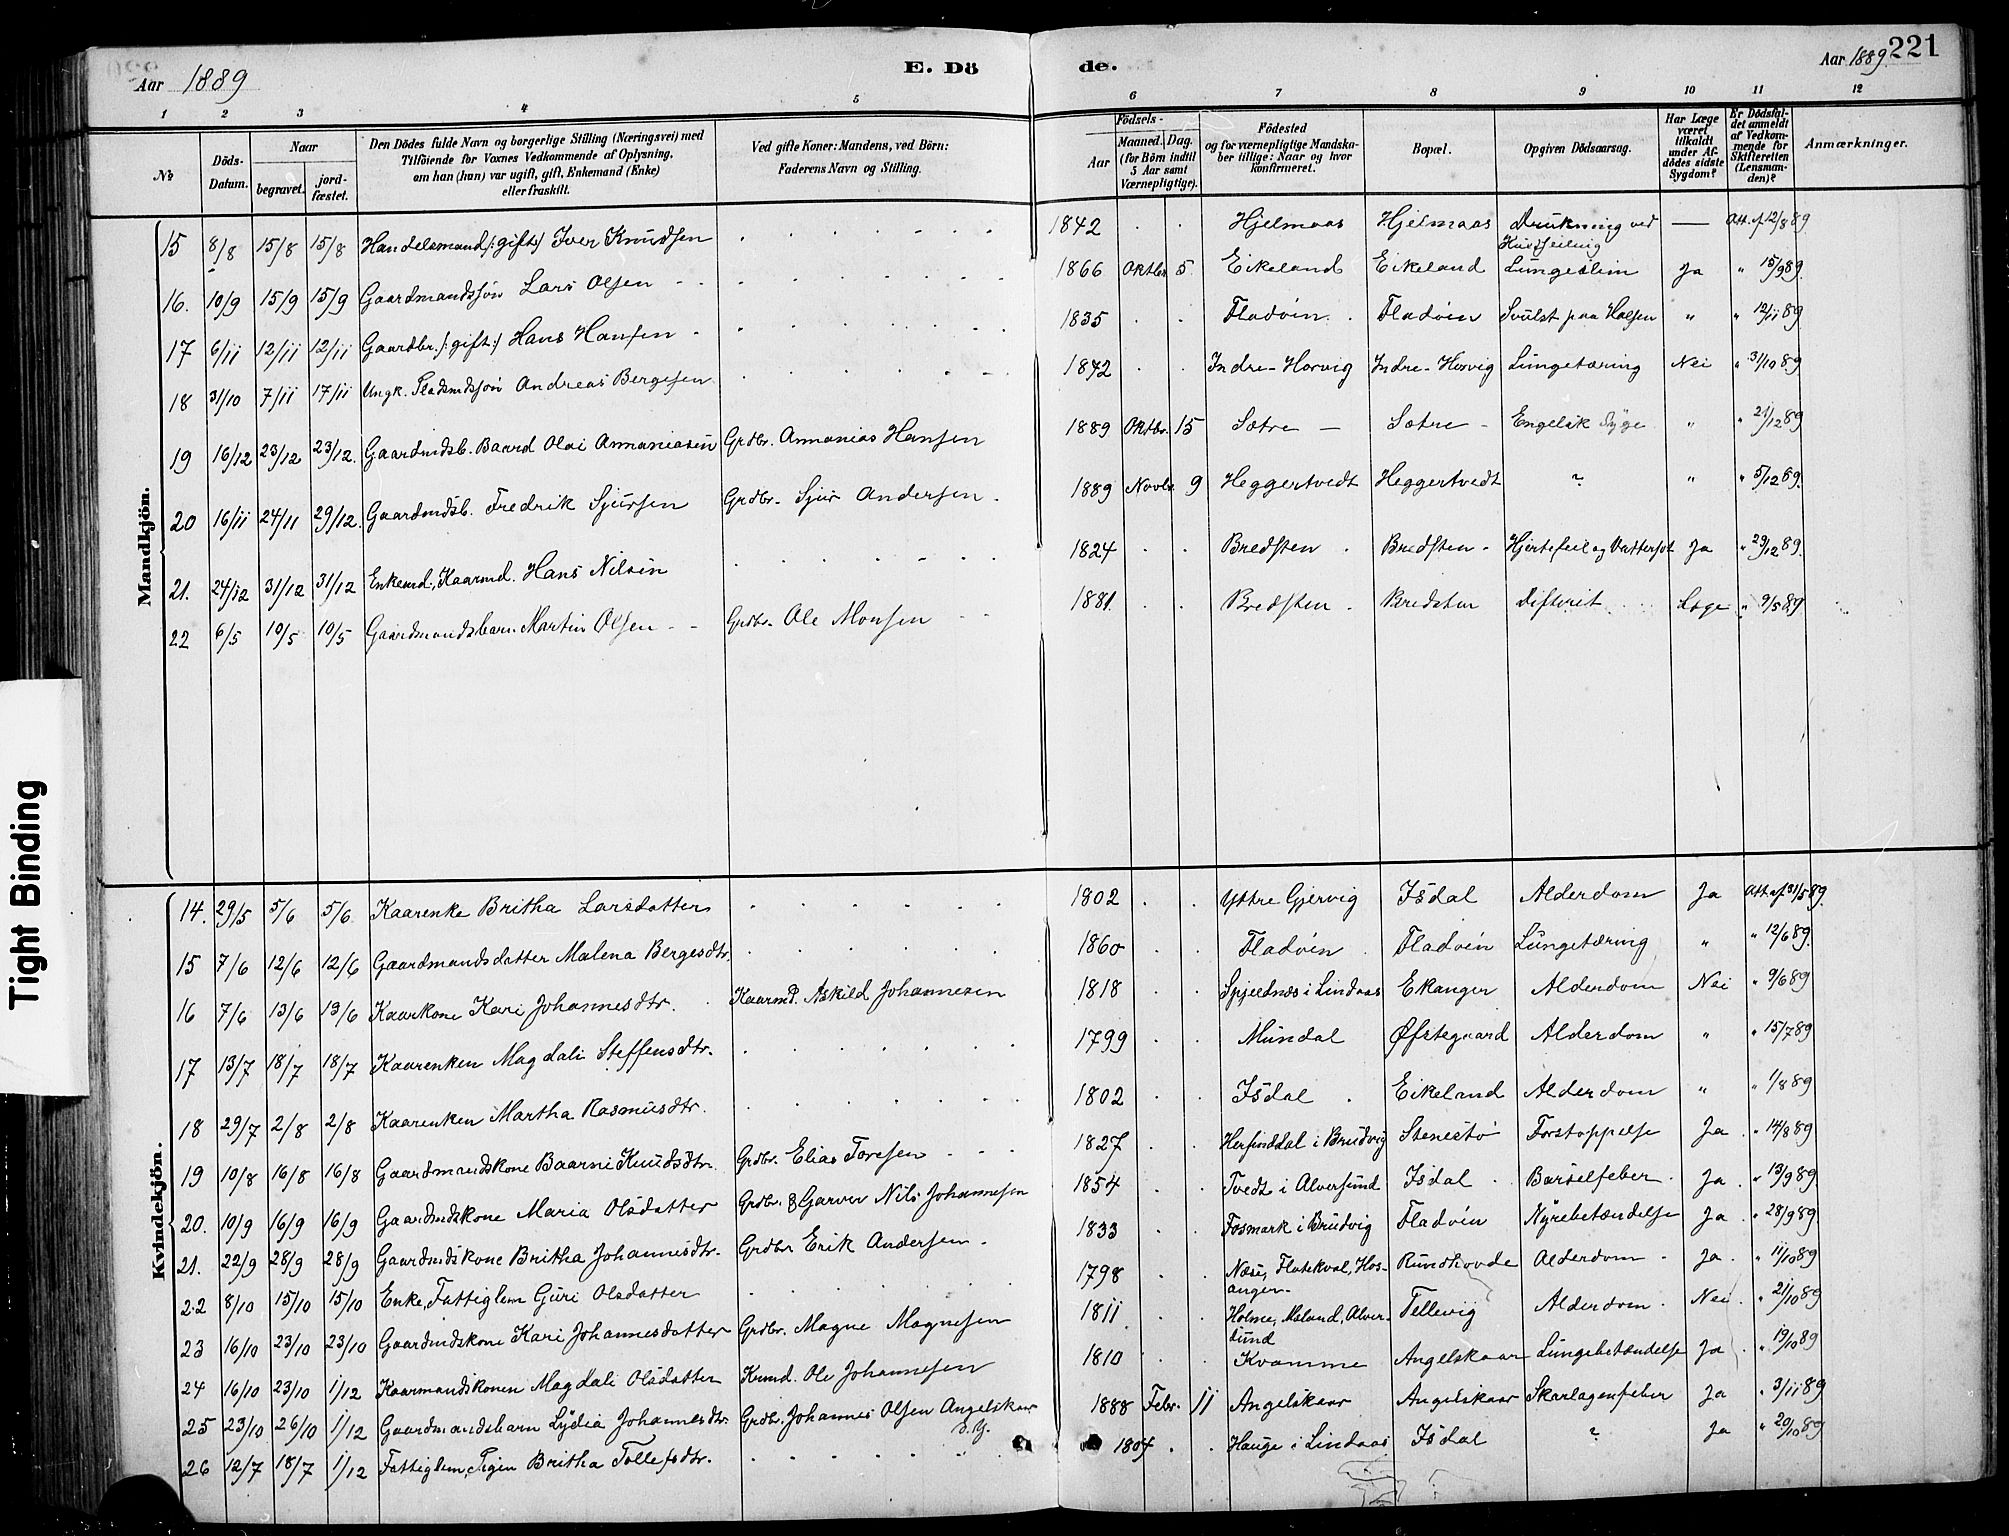 Aar 1889 E. Dö de. Aar 1889. 221
1 2 3 4 5 6 7 8 9 10 11 12
№
Döds-Datum.
Naar
begravet.
jordfæstet.
Den Dödes fulde Navn og borgerlige Stilling (Næringsvei) med
Tilföiende for Voxnes Vedkommende af Oplysning,
om han (hun) var ugift, gift, Enkemand (Enke)
eller fraskilt.
Ved gifte Koner: Mandens, ved Börn:
Faderens Navn og Stilling.
Födsels-
Aar
Maaned. Dag.
(for Börn indtil
5 Aar samt
Værnepligtige).
Födested
og for værnepligtige Mandskaber
tillige: Naar og hvor
konfirmeret.
Bopæl.
Opgiven Dödsaarsag.
Har Læge
været
tilkaldt
under Afdödes
sidste
Sygdom?
Er Dödsfaldet
anmeldt
af Vedkommende
for
Skifteretten
(Lensmanden)?
Anmærkninger.
Mandkjön.
15 8/8 15/8 15/8 Handelsmand /:gift:/ Iver Knudsen 1842 Hjelmaas Hjelmaas Drukning ved Kuldseiling — Att. af 12/8 89
16. 10/9 15/9 15/9 Gaardmandssøn Lars Olsen 1866 Oktbr 5 Eikeland Eikeland Lungeslim Ja " 15/9 89.
17 6/11 12/11 12/11 Gaardbr. /:gift:/ Hans Hansen 1835 Fladøien Fladøien Svulst paa Halsen " " 12/11 89
18 31/10 7/11 17/11 Ungk. Pladsmdsøn Andreas Bergesen 1842 Indre-Horvig Indre-Horvig Lungetæring Nei " 31/10 89
19 16/12 23/12 23/12. Gaardmdsb. Baard Olai Annaniasen Grdbr. Annanias Hansen 1889 Oktbr. 15 Sætre — Sætre - Engelsk Syge " " 21/12 89
20 16/11 24/11 29/12. Gaardmdsb. Fredrik Sjursen Grdbr. Sjur Andersen. 1889 Novbr 9 Heggertvedt Heggertvedt ? " " 5/12 89.
21. 24/12 31/12 31/12 Enkemd., Kaarmd. Hans Nilsen 1824 Bredsten Bredsten - Hjertefeil og Vattersot Ja " 29/12 89.
22 6/5 10/5 10/5 Gaardmandsbarn Martin Olsen Grdbr. Ole Monsen 1881. Bredsten Bredsten Difterit Læge " 9/5 89
Kvindekjön.
14. 29/5 5/6 5/6 Kaarenke Britha Larsdatter 1802 Yttre Gjervig Isdal Alderdom Ja Att. af 31/5 89.
15 7/6 12/6 12/6 Gaardmandsdatter Malena Bergesdtr. 1860 Fladøien Fladøien Lungetæring " " 12/6 89.
16 7/6 13/6 13/6 Kaarkone Kari Johannesdtr. Kaarmd. Askild Johannesen 1818 Spjeldnæs i Lindaas Ekanger Alderdom Nei " 9/6 89
17 13/7 18/7 18/7 Kaarenken Magdali Steffensdtr. 1799 Mundal Øfstegaard Alderdom " " 15/7 89
18 29/7 2/8 2/8 Kaarenken Martha Rasmusdtr. 1802 Isdal Eikeland Alderdom " " 1/8 89
19 10/8 16/8 16/8 Gaardmandskone Baarni Knudsdtr. Grdbr. Elias Toresen 1827 Herfinddal i Brudvig Stenestø Forstoppelse Ja " 14/8 89
20. 10/9 16/9 16/9 Gaardmdskone Maria Olsdatter Grdbr. & Garver Nils Johannesen 1854 Tvedt i Alversund Isdal Barselfeber Ja " 13/9 89
21. 22/9 28/9 28/9 Gaardmdskone Britha Johannesdtr. Grdbr Erik Andersen 1833 Fosmark i Brudvig Fladøien Nyrebetændelse Ja " 28/9 89
22 8/10 15/10 15/10 Enke, Fattiglem Guri Olsdatter 1798 Næse, Flatekval, Hosanger Rundhovde Alderdom Ja " 11/10 89
23 16/10 23/10 23/10 Gaardmdskone Kari Johannesdatter Grdbr. Magne Magnesen 1811 Holme, Asland, Alversund Tellevig Alderdom Nei " 21/10 89
24 16/10 23/10 1/12 Kaarmandskonen Magdali Olsdatter Krmd. Ole Johannesen 1810 Kvamme Angelskaar Lungebetændelse Ja " 19/10 89
25 23/10 26/10 1/12 Gaardmandsbarn Lydia Johannesdtr. Grdbr. Johannes Olsen Angelskaar 1888 Febr. 11 Angelskaar Angelskaar Skarlagenfeber Ja " 3/11 89
26 12/7 18/7 1/12 Fattiglem, Pigen Britha Tollefsdtr. 1804 Hauge i Lindaas Isdal ? Ja " 20/10 89
Tight Binding